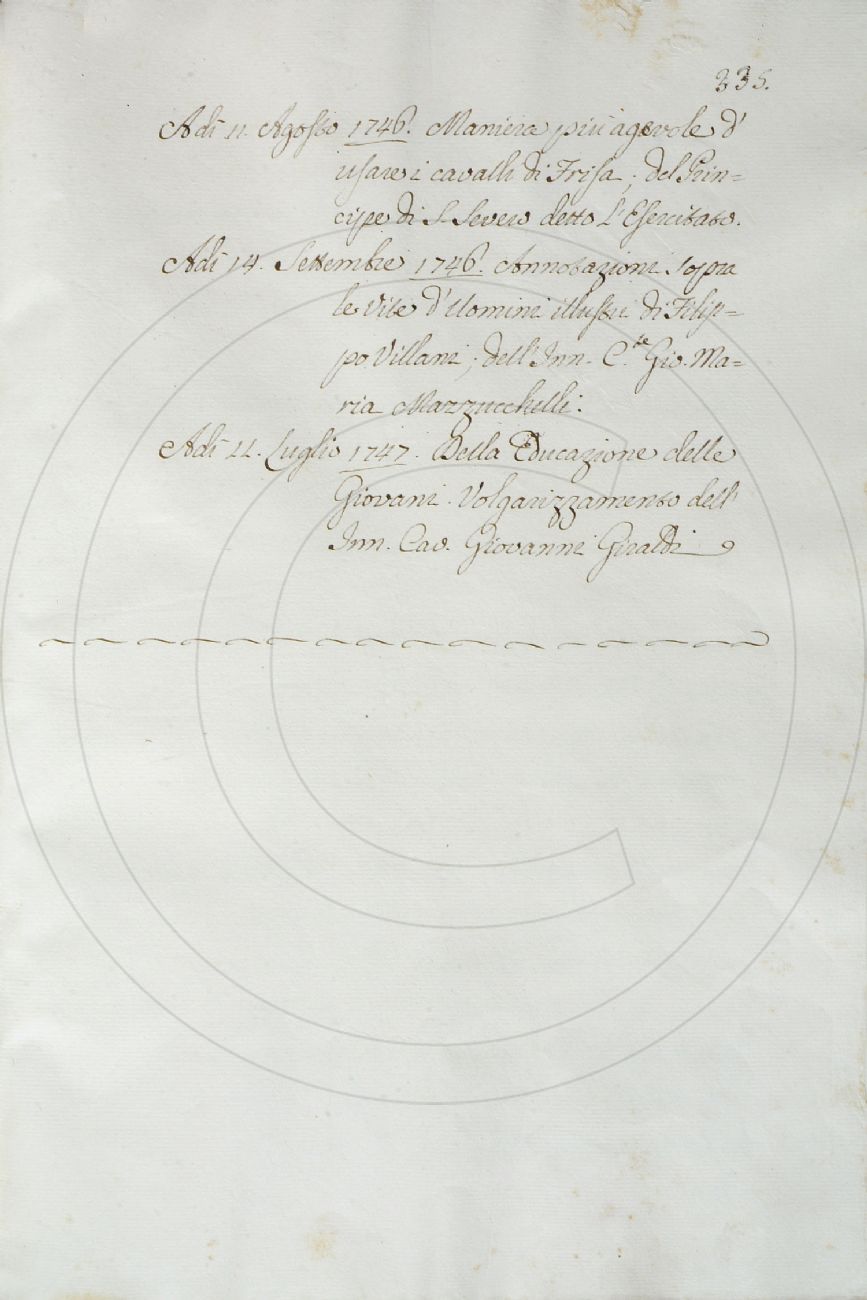 235.
Adì 11. Agosto 1746. Maniera più agevole d'
usare i cavalli di Frisa, del Prin=
cipe di S. Severo detto L'Esercitato.
Adì 14. Settembre 1746. Annotazioni sopra
le Vite d'Uomini illustri di Filip=
po Villani, dell'Inn. C.te Gio. Ma=
ria Mazzucchelli.
Adì 11. Luglio 1747. Della Educazione delle
Giovani. Volgarizzamento dell'
Inn. Cav. Giovanni Giraldi